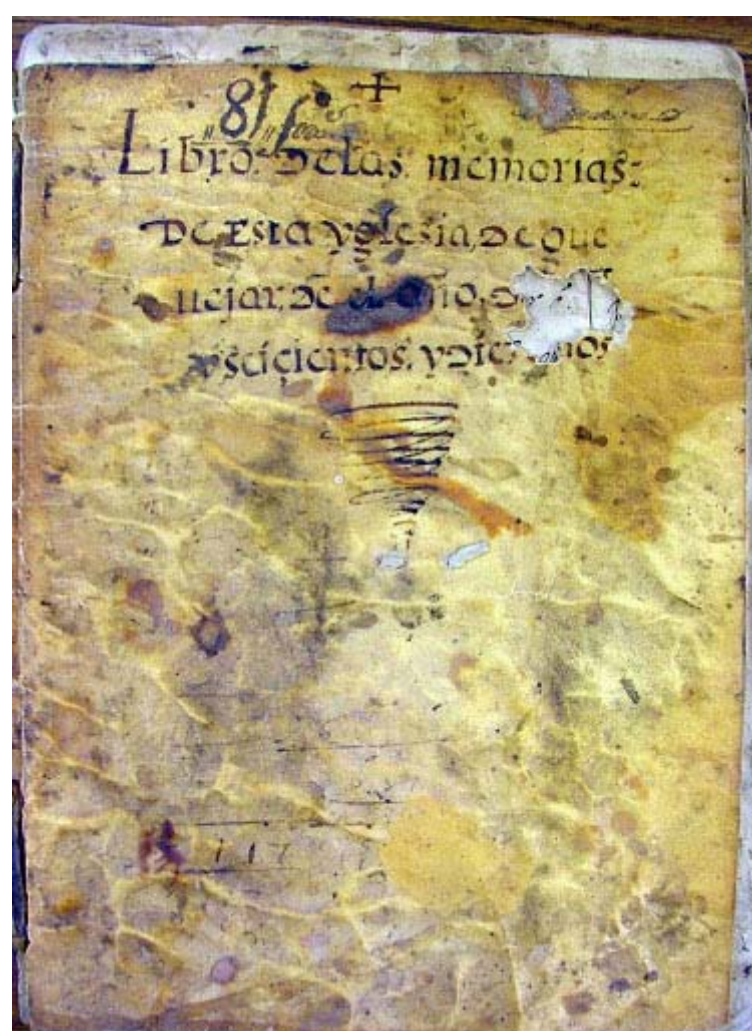 +
81
Libro. De las. memorias:
De Esta yglesia, De que
uejar, De el año. D
yseiçientos. y Die nos
117